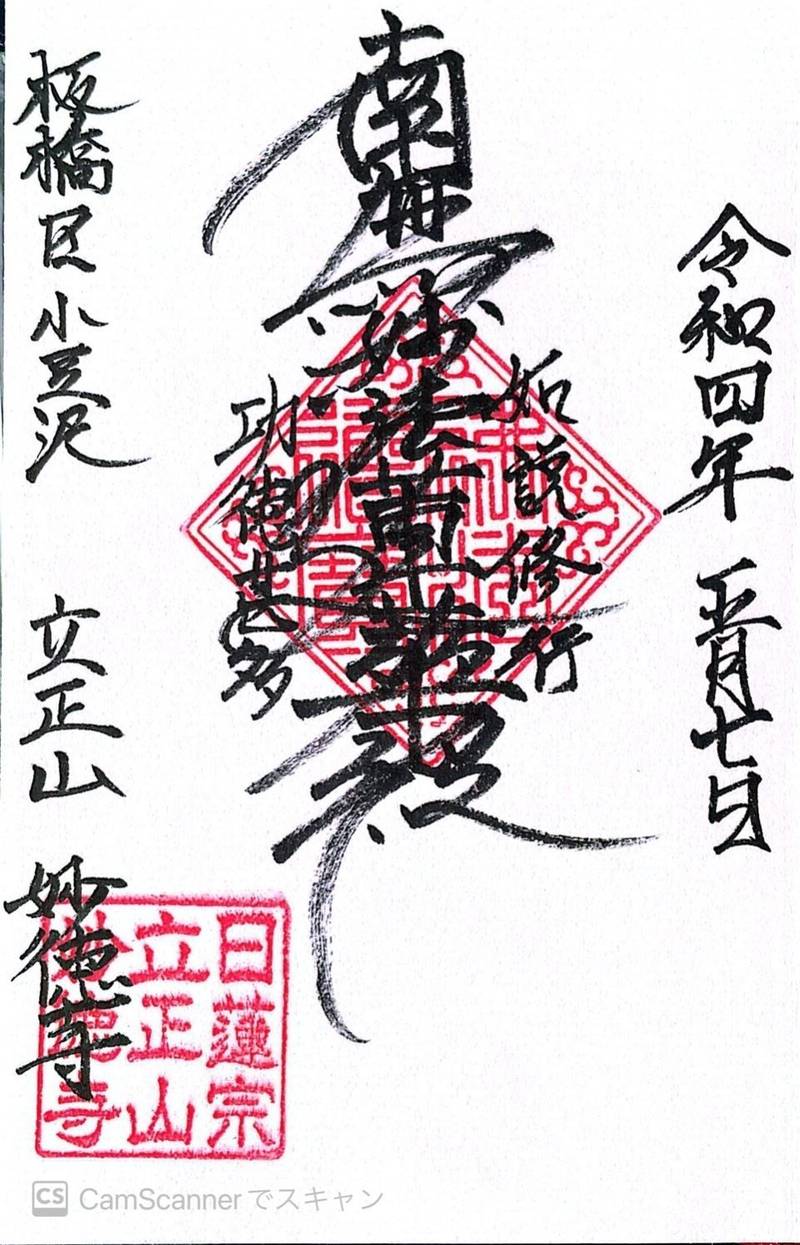 令和四年 正月七日
如説修行
南無妙法蓮華経
功徳甚多
板橋区小豆沢 立正山 妙徳寺
日蓮宗
立正山
妙徳寺
CS CamScannerでスキャン